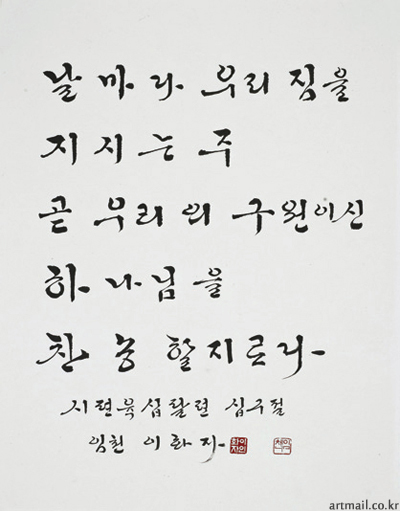 날마다 우리 짐을
지시는 주
곧 우리의 구원이신
하나님을
찬송할지로다
시편육십팔편 십구절
이화자
artmail.co.kr